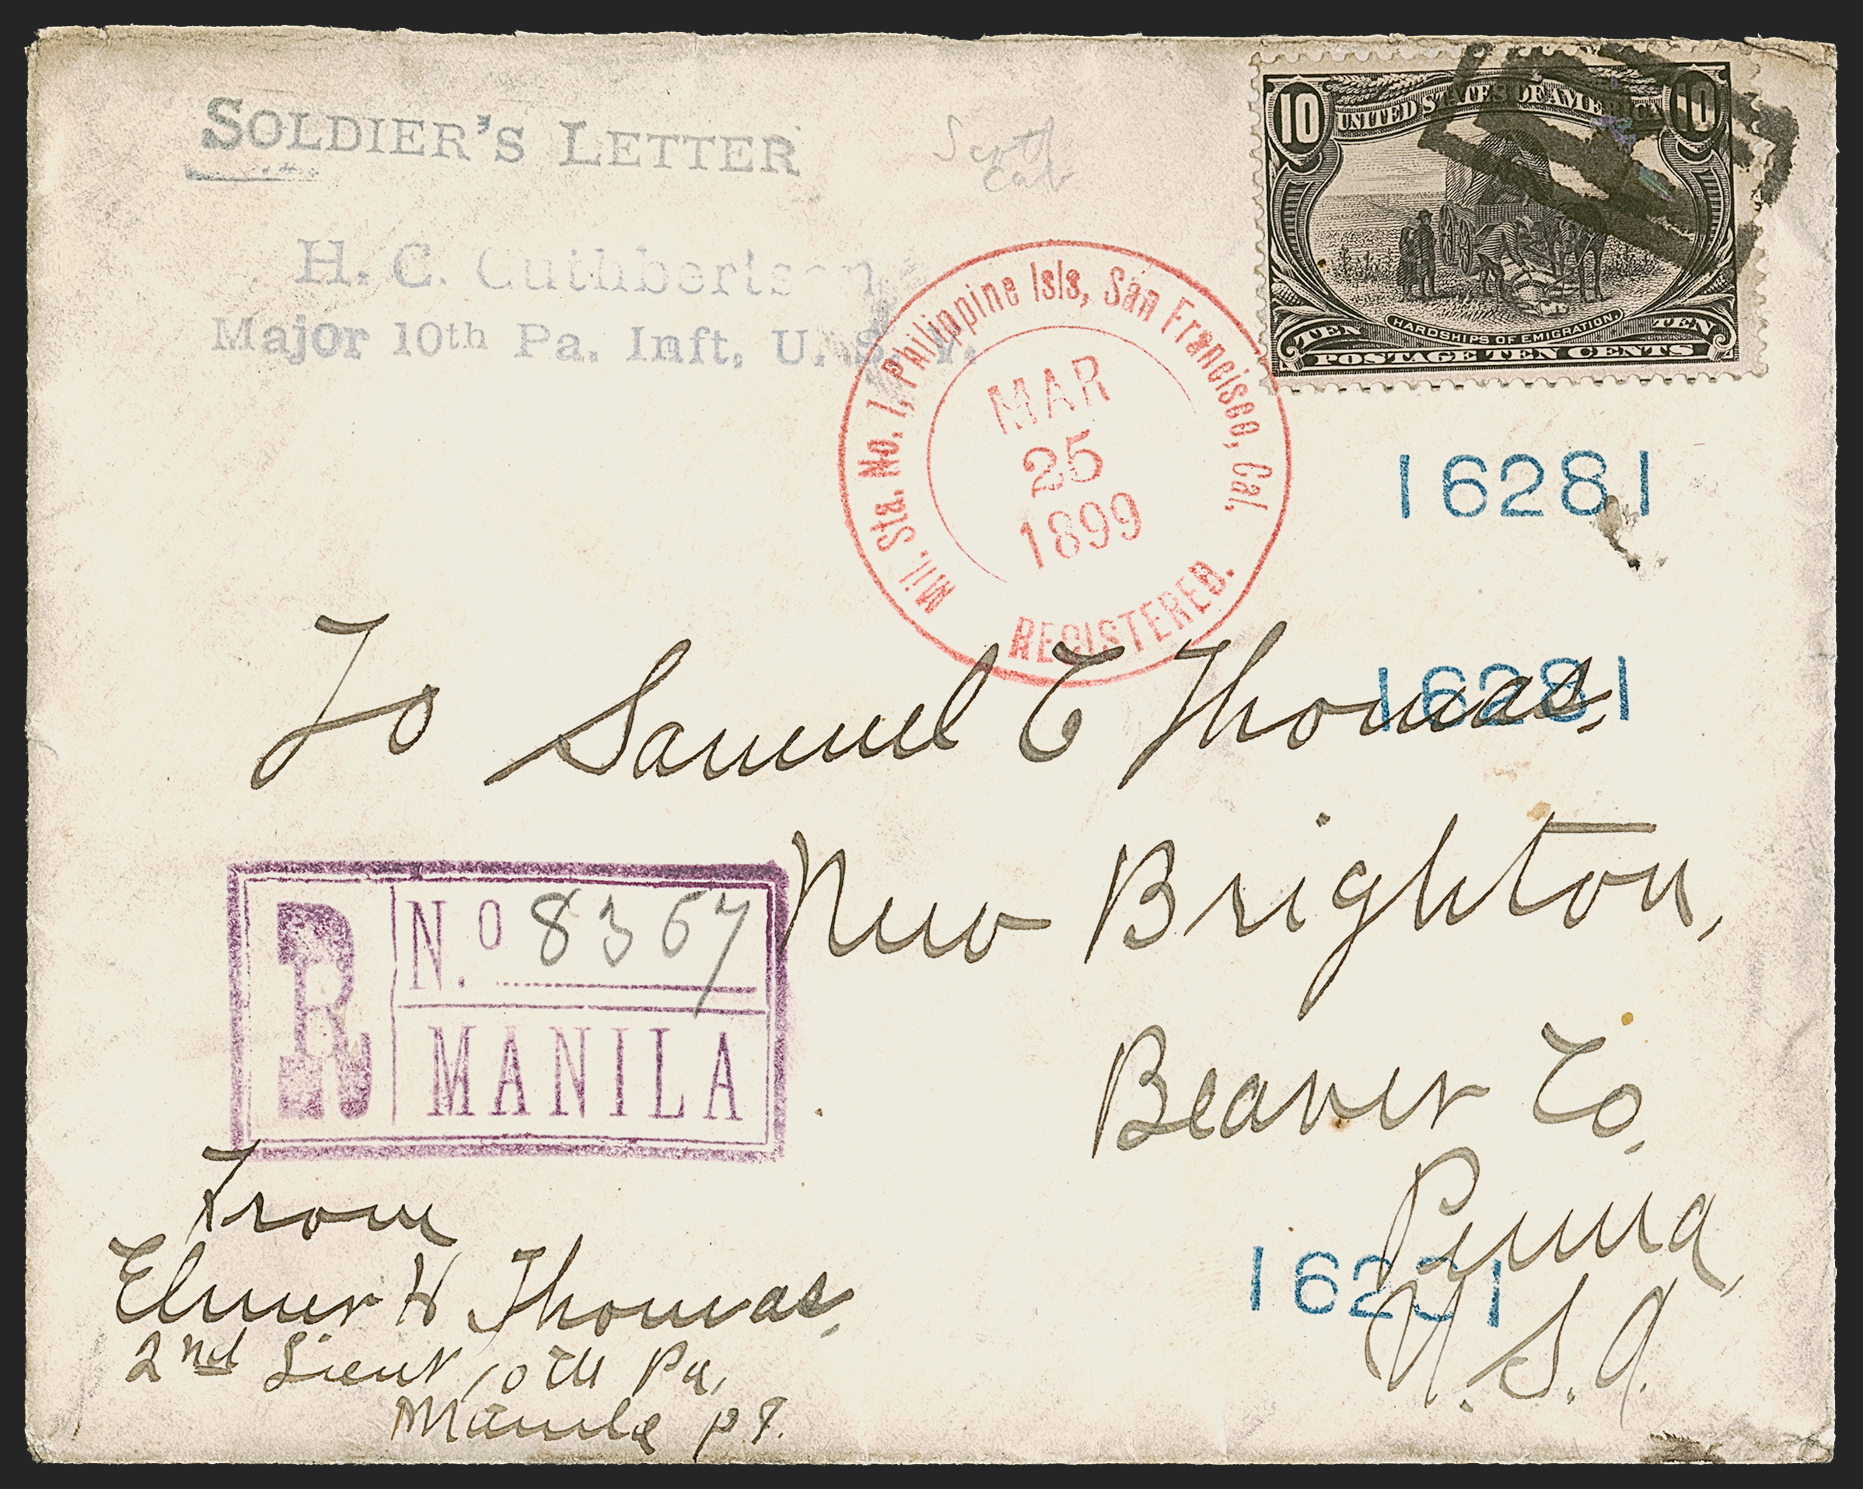 SOLDIER'S LETTER
H. C. Cuthbertson
Major 10th Pa. Inft, U. S. V.
10 UNITED STATES OF AMERICA 10
HARDSHIPS OF EMIGRATION.
TEN TEN
POSTAGE TEN CENTS
Mil. Sta. No. 1, Philippine Isls, San Francisco, Cal,
MAR
25
1899
REGISTERED.
16281
16281
To Samuel C Thomas,
New Brighton,
Beaver Co.
Penna,
U. S. A.
16281
R
N.o 8367
MANILA
From
Elmer H Thomas,
2nd Lieut 10th Pa,
Manila P I.